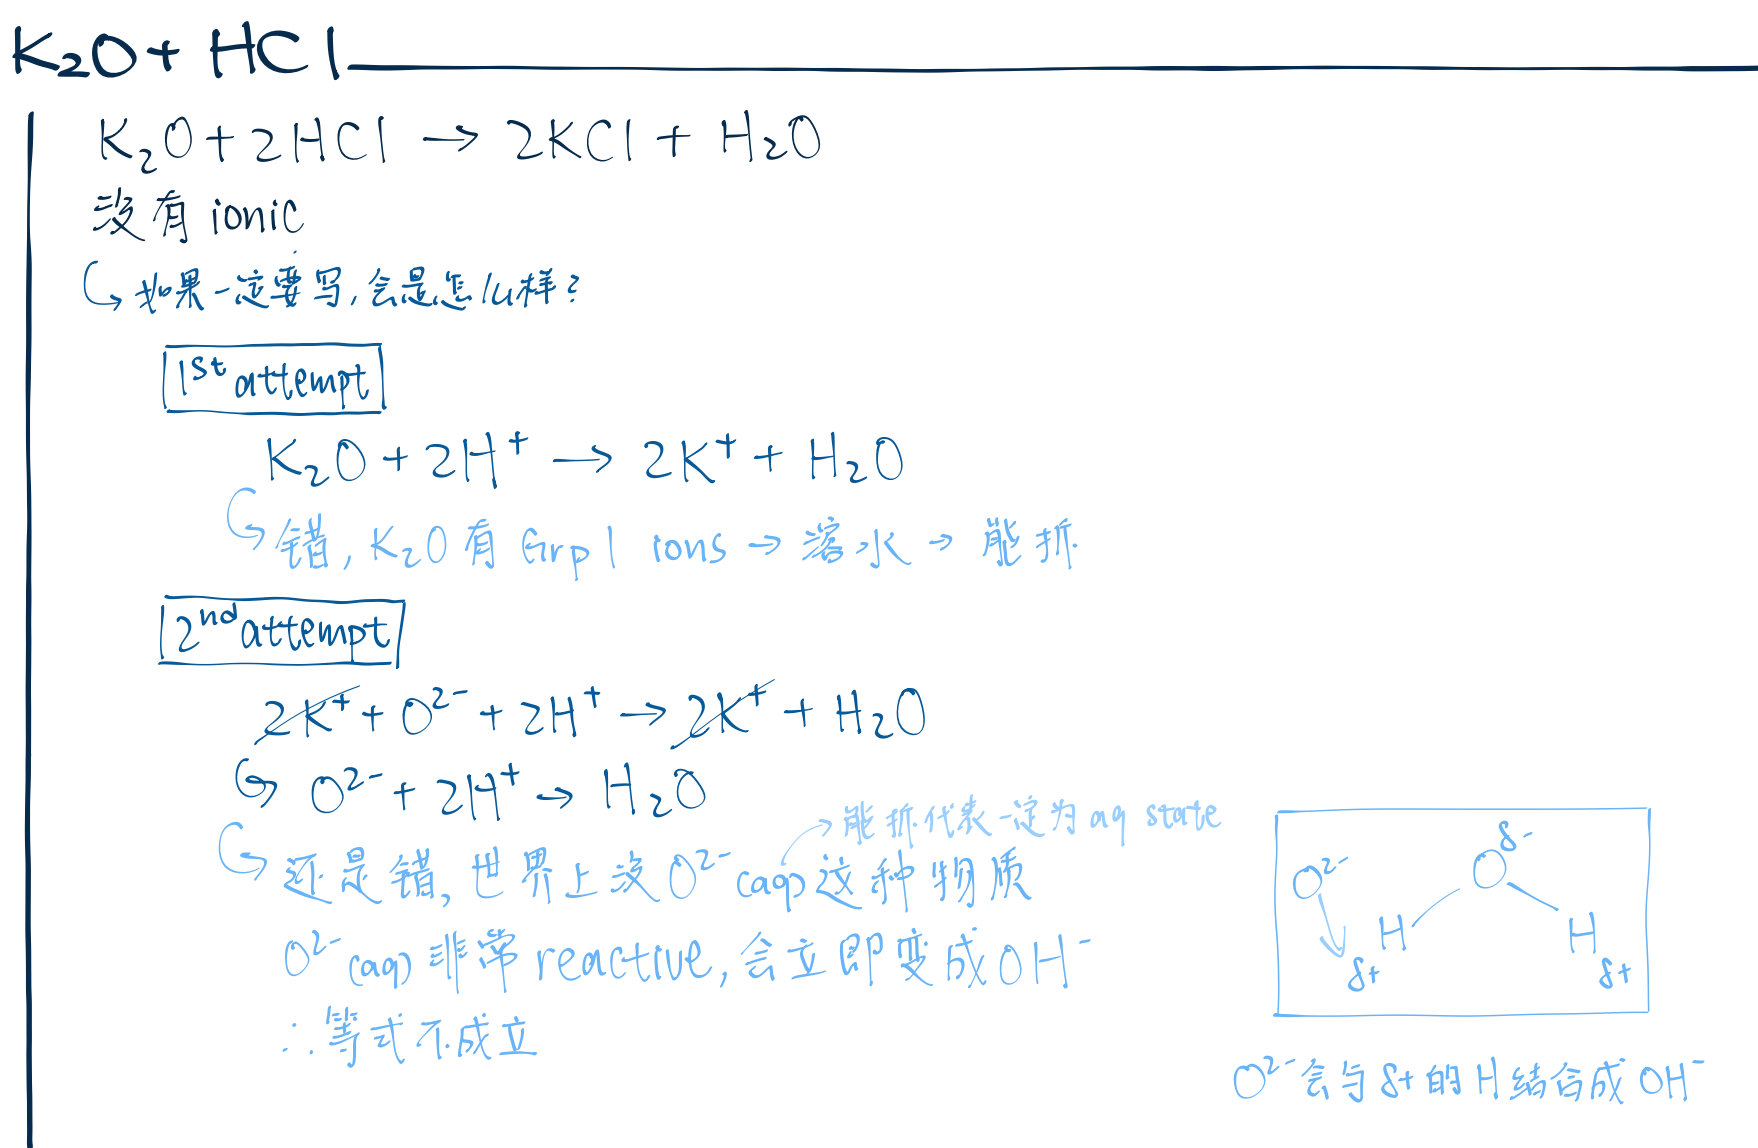 K₂O + HCl
K₂O + 2HCl → 2KCl + H₂O
没有 ionic
↳ 如果一定要写, 会是怎么样?
1st attempt
K₂O + 2H⁺ → 2K⁺ + H₂O
↳ 错, K₂O 有 Grp 1 ions → 溶水 → 能拆
2nd attempt
2K⁺ + O²⁻ + 2H⁺ → 2K⁺ + H₂O
↳ O²⁻ + 2H⁺ → H₂O
→ 能拆代表一定为 aq state
↳ 还是错, 世界上没 O²⁻ (aq) 这种物质
O²⁻ (aq) 非常 reactive, 会立即变成 OH⁻
∴ 等式不成立
O²⁻ O δ-
H H
δ+ δ+
O²⁻ 会与 δ+ 的 H 结合成 OH⁻